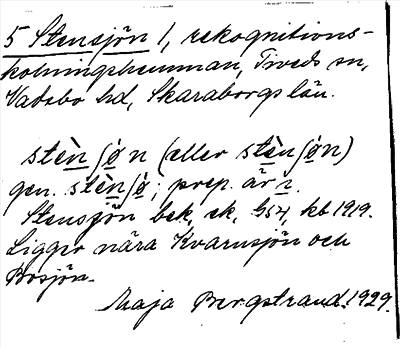 5 Stensjön 1, rekognitions-
kolningshemman, Tiveds sn,
Vadsbo hd, Skaraborgs län.
stèn ʃǿ n (eller stènʃǿn)
gen. stènʃǿ; prep. är i.
Stensjön bek, ek, G54, kb 1919.
Ligger nära Kvarnsjön och
Bosjön.
Maja Bergstrand. 1929.